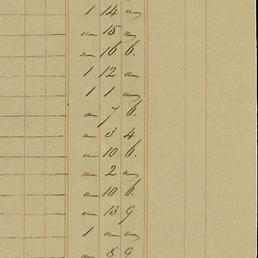 1 14 "
" 15 "
" 16 6.
1 12 "
1 1 "
" 7 6.
" 3 4
" 10 6.
" 2 "
" 10 6.
" 13 9
1 " "
" 8 9